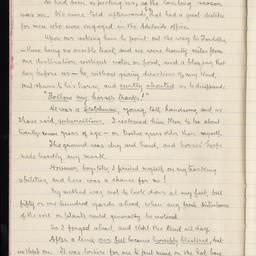 had been expecting us, as the
was on. We were told afterwards that had a great dislike
for men who were engaged in the Adelaide office.
Upon our asking him to point out the way to
there being no visible track, and we were twenty miles from
our destination without water or food, and a blazing hot
day before us — he, without giving directions of any kind,
his horse, and shouted as he
"Follow my horse's tracks!"
He was a young, tall, handsome and, as
I have said, I reckoned him then to be about
twenty-seven years of age — or twelve years older than myself.
The ground was dry and hard, and horses' hoofs
made hardly any mark.
However, boy-like, I prided myself on my tracking
abilities, and here was a chance for me!
My method was not to look down at my feet, but
fifty or one hundred yards ahead, when any fresh disturbance
of the soil or plants could generally be noticed.
So I jogged ahead, and held the trail all day.
After a time, our feet became horribly blistered, but
we kept on. It was torture for me to put mine on the hot